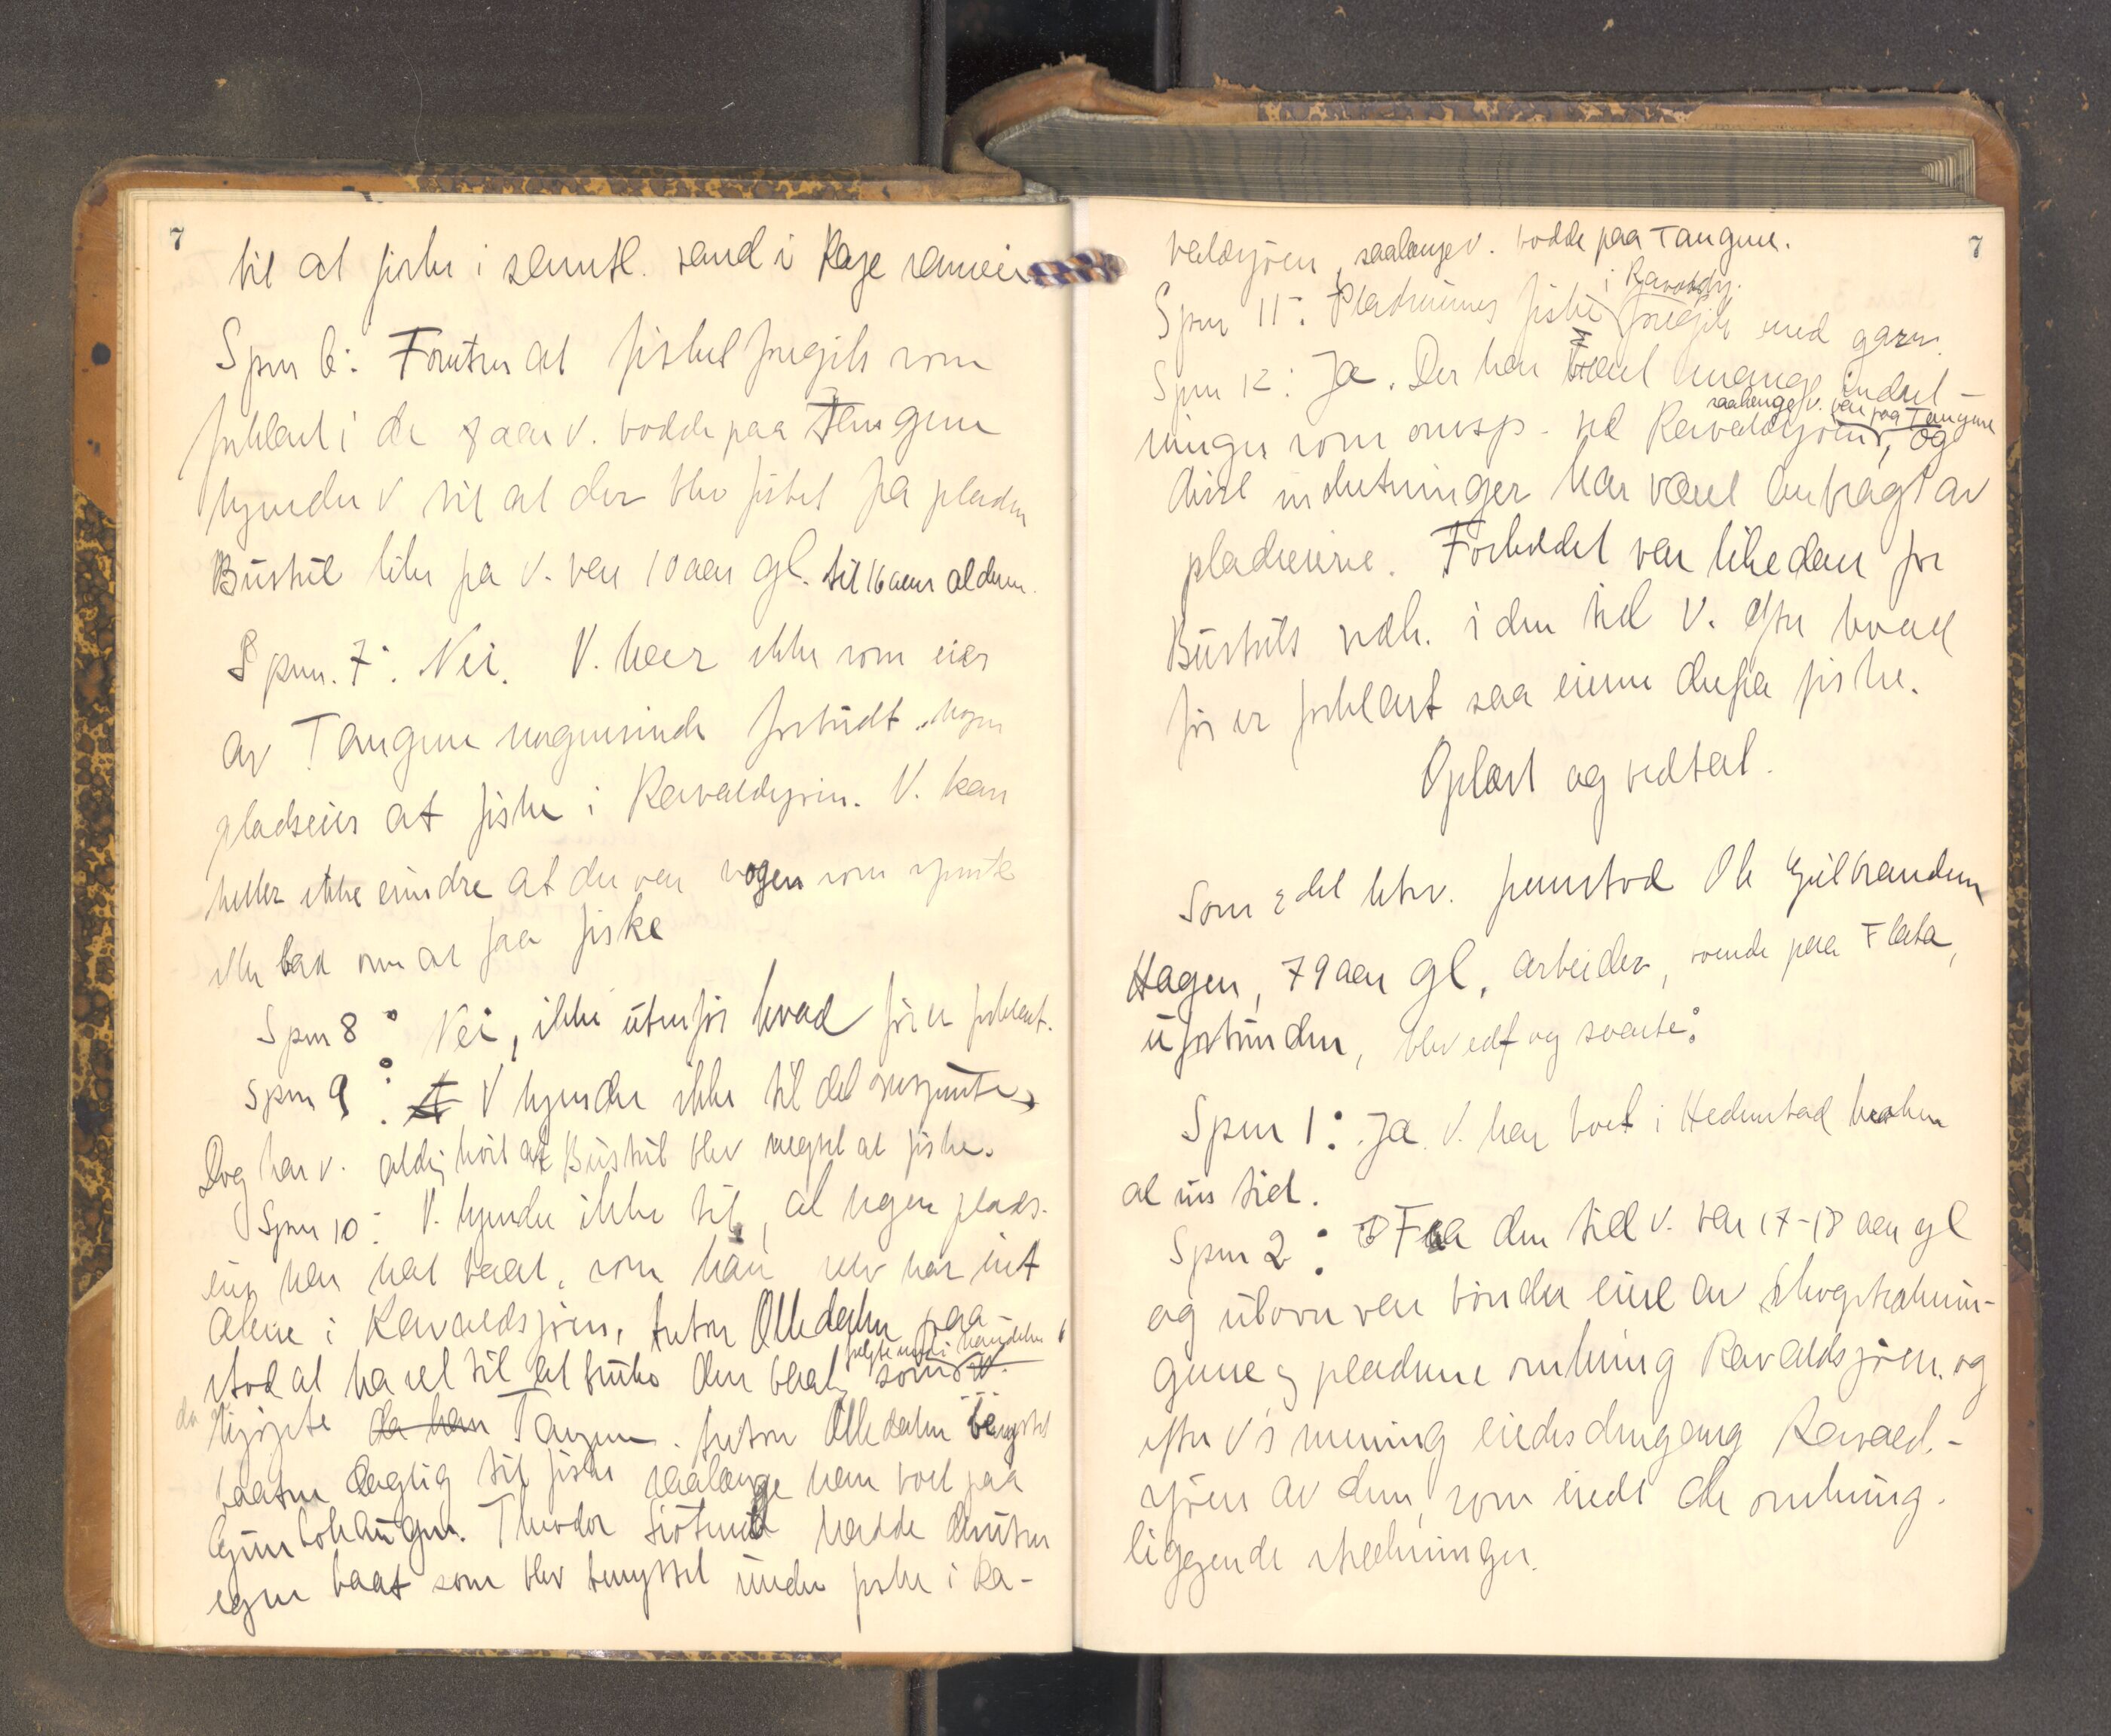 7
til at fiske i samtl. vand i Rage sameie
Spm 6: Foruten at fisket foregik som
forklart i de 8 aar v. bodde paa Tangene
kjender v til at der blev fisket fra pladsen
Bustul like fra v. var 10 aar gl. til 16 aars alderen.
Spm. 7: Nei. V. har ikke som eier
av Tangene nogensinde forbudt nogen
pladseier at fiske i Ravaldsjøen. V. kan
heller ikke erindre at der var nogen som spurte
eller bad om at faa fiske
Spm 8: Nei, ikke utenfor hvad før er forklart.
Spm 9: V kjender ikke til det omspurte.
Dog har v. aldrig hørt at Bustul blev negtet at fiske.
Spm 10: V. kjender ikke til, at nogen plads-
eier har hat baat, som han selv har eiet
alene i Ravaldsjøen, Olledalen paa-
stod at ha ret til at bruke den baat, som
fulgte med i handelen
da v. kjøpte da han Tangene. Olledalen benyttet
baaten daglig til fiske saalænge han bod paa
Gunbolhaugen. Theodor hadde desuten
egen baat som blev benyttet under fiske i Ra-
7
valdsjøen, saalænge v. bodde paa Tangene.
i Ravaldsj.
Spm 11: Pladseiernes fiske foregik med garn.
Spm 12: Ja. Der har været mange indret-
saalænge v. var paa Tangene
ninger som omsp. ved Ravaldsjøen, og
disse indretninger har været anbragt av
pladseierne. Forholdet var likedan for
Bustuls vedk. i den tid v. efter hvad
før er forklart saa eieren derfra fiske.
Oplæst og vedtat.
Som 2det vidne. fremstod Ole Gulbrandsen
Hagen, 79 aar gl, arbeider, boende paa Flata,
uforbunden, blev edf og svarte:
Spm 1: Ja V. har boet i Hedenstad trakten
al sin tid.
Spm 2: Fra den tid v. var 17-18 aar gl
og utover var bønder eiere av skogstræknin-
gene og pladsene omkring Ravaldsjøen. og
efter v's mening eiedes dengang Ravald-
sjøen av dem, som eiede de omkring-
liggende strækninger.